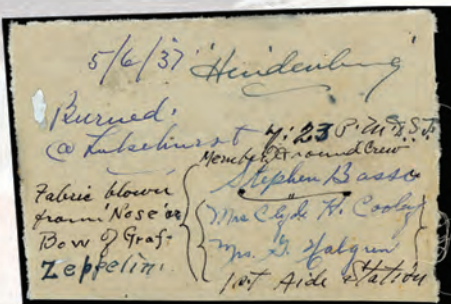 5/6/37 'Hindenburg'
Burned.
@ Lakehurst 7:23 P.M.
Member Ground Crew
Stephen Basso
Fabric blown
from 'Nose' or
Bow of Graf-
Zeppelin.
Mrs Clyde H. Cooley
Mrs. G. Halgren
1st Aide Station